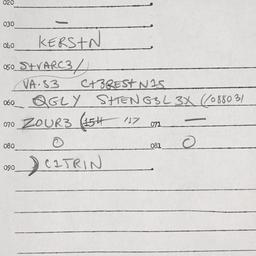 020
030 —
040 KERStN
050 StVARC3/
VA.S3 Ct3REStN1S
060 QGLY StTENG3L3X (/088031
070 ZOUR3 (154 '17 071 —
080 0 081 0
090 )C2TRIN